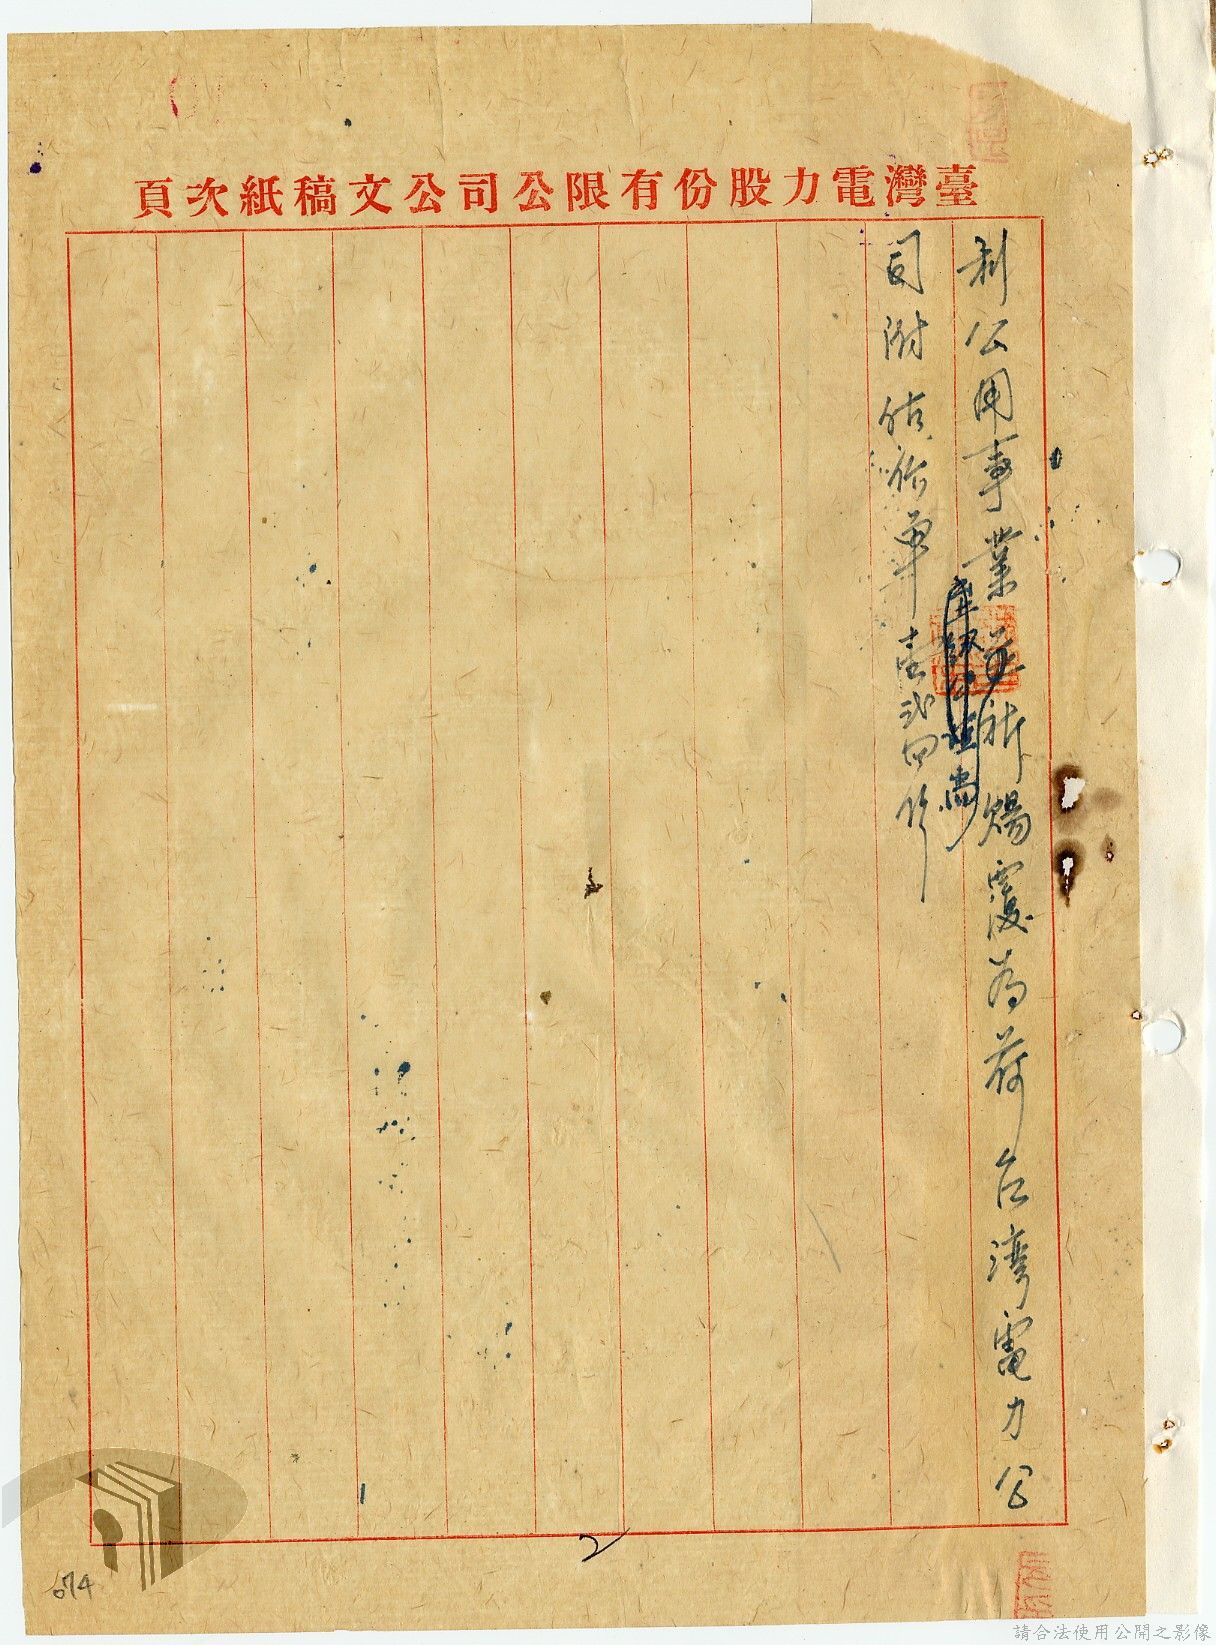 臺灣電力股份有限公司公文稿紙次頁
利公用事業並祈賜覆為荷台灣電力公
司附估價單壹式四份
2
674
請合法使用公開之影像